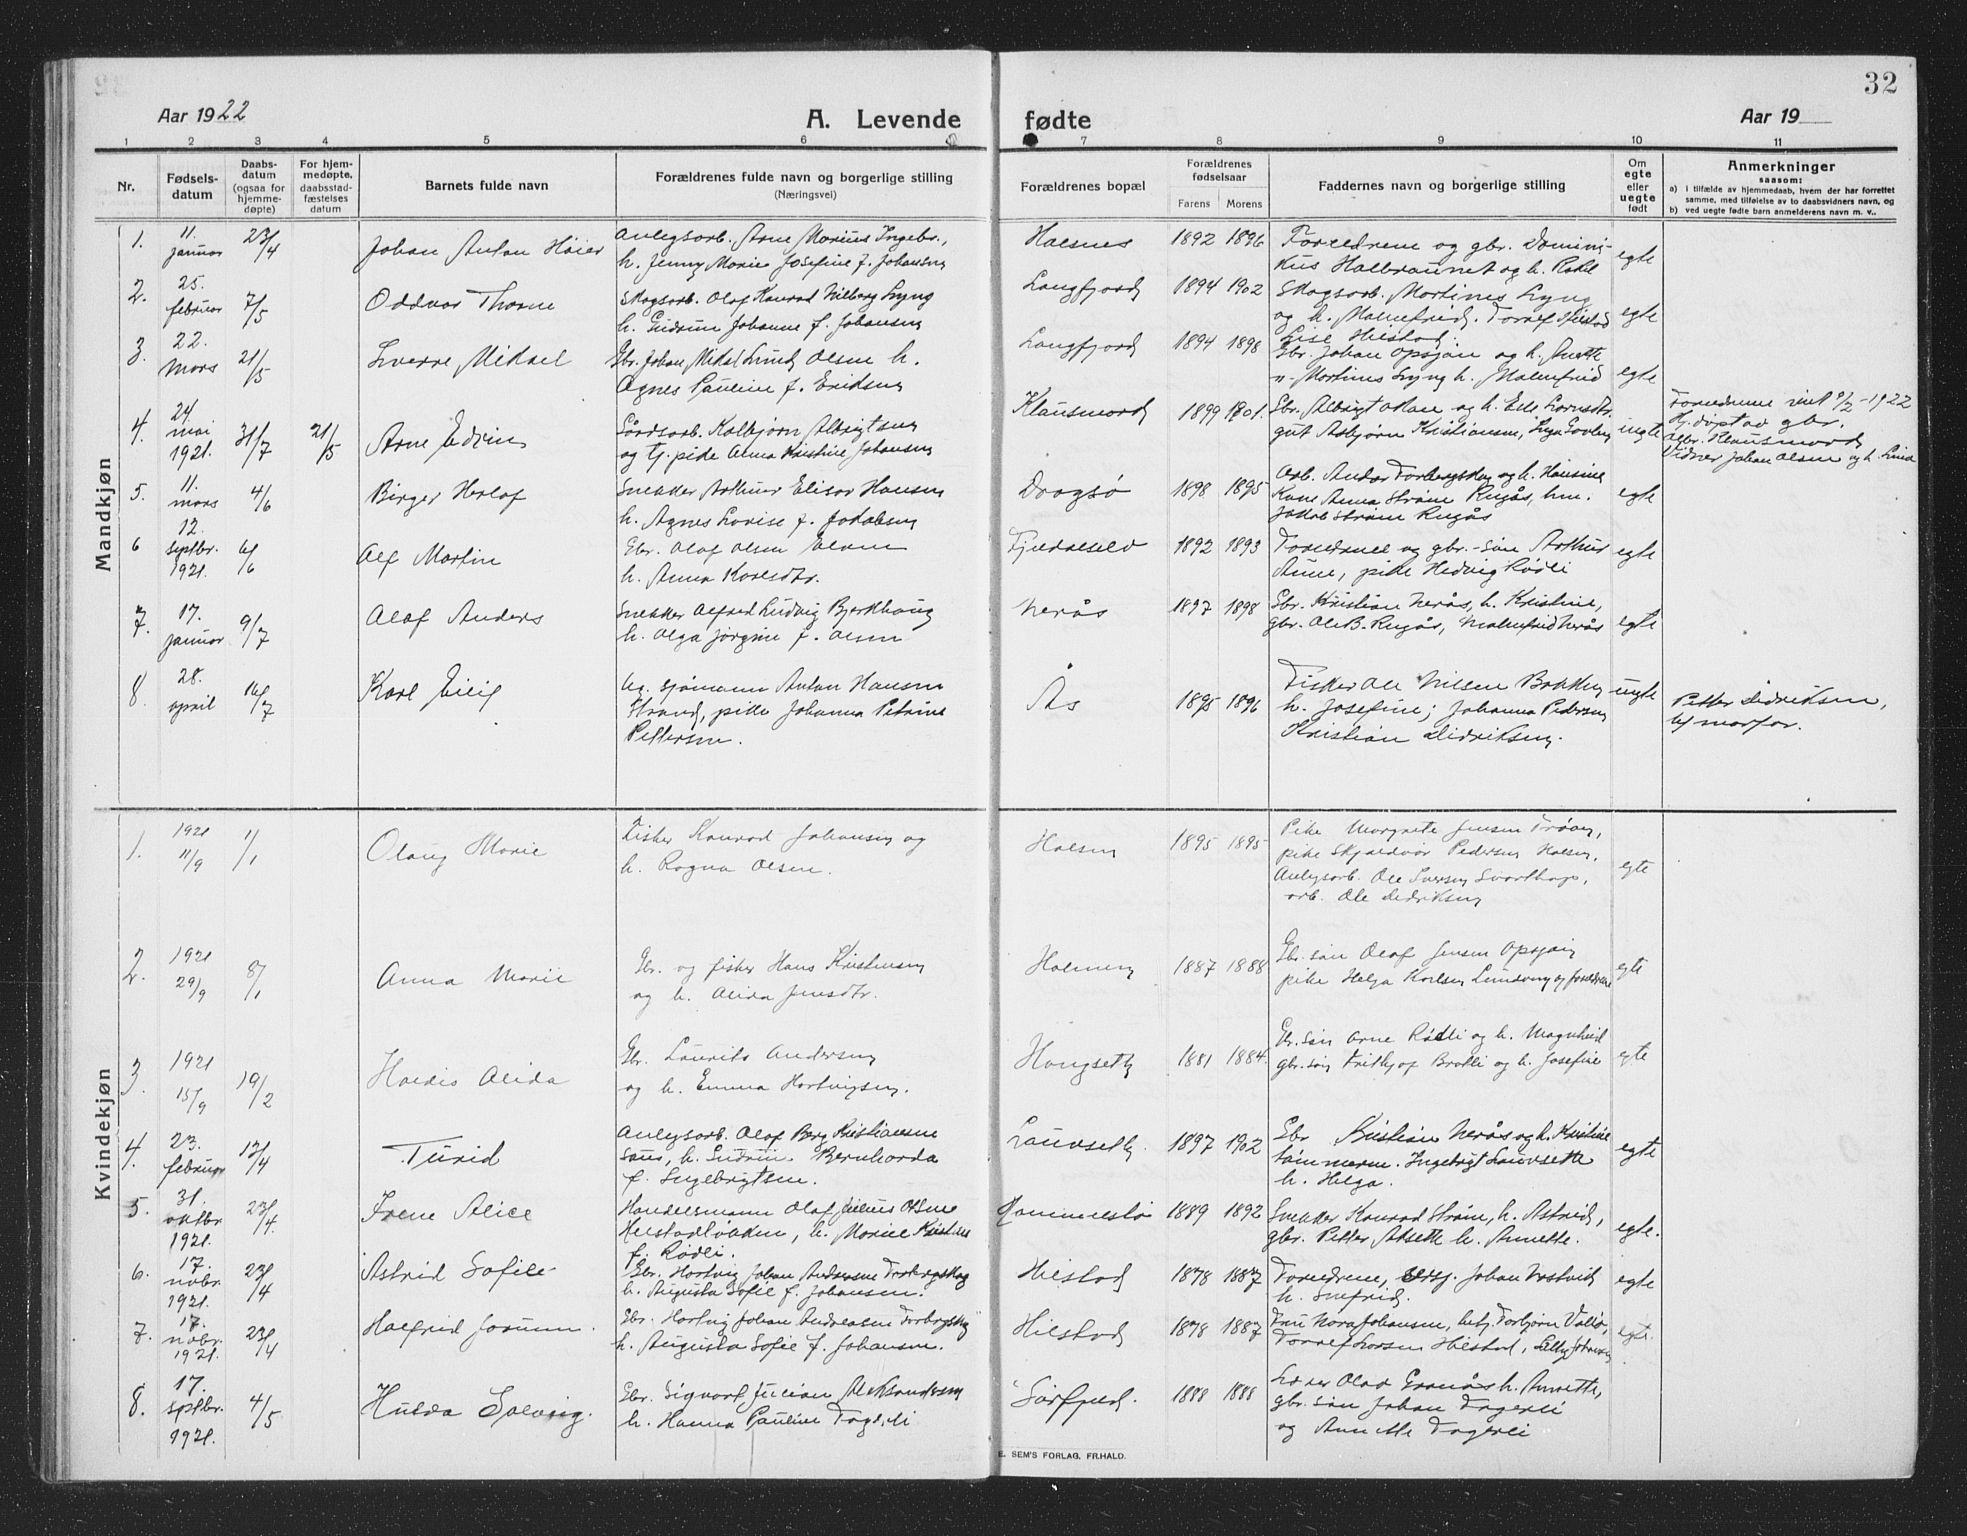 32
Aar 1922
A. Levende fødte
Aar 19
1 2 3 4 5 6 7 8 9 10 11
Nr.
Fødsels-
datum
Daabs-
datum
(ogsaa for
hjemme-
døpte)
For hjem-
medøpte,
daabsstad-
fæstelses
datum
Barnets fulde navn
Forældrenes fulde navn og borgerlige stilling
(Næringsvei)
Forældrenes bopæl
Forældrenes
fødselsaar
Farens Morens
Faddernes navn og borgerlige stilling
Om
egte
eller
uegte
født
Anmerkninger
saasom:
a) i tilfælde av hjemmedaab, hvem der har forrettet
samme, med tilføielse av to daabsvidners navn, og
b) ved uegte fødte børn anmelderens navn m. v..
Mandkjøn
1.
11.
januar
23/4
Johan Anton Høier
Anlegsarb. Arne Marius Ingebr.,
h. Jenny Marie Josefine f. Johansen
Halsnes
1892 1896
Forældrene og gbr. Domini-
kus Halbraunet og h. Rakel
egte
2.
25.
februar
7/5
Oddvar Thorne
Skogsarb. Olaf Konrad Lyng
h. Gudrun Johanne f. Johansen
Langfjord
1894 1902
Skogsarb. Martinus Lyng
og h. Malmfrid. Torlef Hilstad
Lise Hilstad.
egte
3.
22.
mars
21/5
Sverre Mikael
Gbr. Johan Mikal Lund Olsen h.
Agnes Pauline f. Eriksen
Langfjord
1894 1898
Gbr. Johan Opsjøn og h. Anette
"- Martinus Lyng h. Malmfrid
egte
4.
24.
mai
1921.
31/7
21/5
Arne Edvin
Gårdsarb. Kolbjørn Albrigtsen
og tj. pike Anna Kristine Johansen
Klausmord
1899 1901.
Gbr. Albrigt og h.
gut Asbjørn Kristiansen,
uegte
Forældrene viet 9/2-1922
Hj.døpt av gbr.
Klausmord
Vidner Johan Olsen og h.
5.
11.
mars
4/6
Birger Herlof
Snekker Arthur Elisar Hansen
h. Agnes Lovise f. Jakobsen
Dragsø
1898 1895
Arb. Andor Forbergskog og h. Hansine
Kone Anna Strøm Rugås, hm.
Jakob Strøm Rugås
egte
6
12.
septbr.
1921.
6/6
Alf Martin
Gbr. Olaf Olsen
h. Anna Karlsdtr.
1892 1893
Forældrene og gbr.-søn Arthur
Aune, pike Hedvig Rødli
egte
7.
17.
januar
9/7
Olaf Anders
Snekker Alfred Ludvig Bjerkhaug
h. Olga Jørgine f. Olsen
Nerås
1897 1898
Gbr. Kristian Nerås, h. Kristine,
gbr. Ole B. Rugås, Malmfrid Nerås
egte
8.
28.
april
16/7
Karl Eilif
Ug. sjømann Anton Hansen
Strand, pike Johanna Petrine
Pettersen.
Ås
1895 1896
Fisker Ole Nilsen Bakken
h. Josefine; Johanna Pedersen
Kristian Didriksen.
uegte
Petter Didriksen,
morfar.
Kvindekjøn
1.
1921
11/9
1/1
Olaug Marie
Fisker Konrad Johansen og
h. Ragna Olsen.
Halsen
1895 1895
Pike Margrete Jensen Trøen,
pike Skjaldvor Pedersen Halsen,
Anlegsarb. Ole Iversen Svarthop,
arb. Ole Didriksen
egte
2.
1921
29/9
8/1
Anna Marie
Gbr. og fisker Hans Kristensen
og h. Alida Jensdtr.
Holmen
1887 1888
Gbr. søn Olaf Jensen Opsjøn
pike Helga Karlsen og forældrene
egte
3.
1921
15/9
19/2
Haldis Alida
Gbr. Laurits Andersen
og h. Emma Hartvigsen.
Haugseth
1881 1884.
Gbr. søn Arne Rødli og h. Magnhild
gbr. søn Frithjof Bratli og h. Josefine
egte
4.
23.
februar
13/4
Turid
Anlegsarb. Olaf Berg Kristiansen
Saus, h. Gudrun Bernharda
f. Ingebrigtsen.
Lauvseth
1897 1902
Gbr Kristian Nerås og h. Kristine
tømmerm. Ingebrigt Lauvseth
h. Helga.
egte
5.
31.
oktbr
1921.
23/4
Irene Alice
Handelsmann Olaf Julius Olsen
h. Marine Kristine
f. Rødli.
1889 1892
Snekker Konrad Strøm, h. Astrid,
gbr. Petter Alseth h. Annette.
egte.
6.
17.
novbr.
1921.
23/4
Astrid Sofie
Gbr. Hartvig Johan Andreasen Forbergskog
h. Augusta Sofie f. Johansen.
Hilstad
1878 1887
Forældrene, Johan Vestvik
h. Snefrid.
egte
7.
17.
novbr.
1921.
23/4
Halfrid Jorunn.
Gbr. Hartvig Johan Andreasen Forbergskog
h. Augusta Sofie f. Johansen.
Hilstad
1878 1887
Fru Nora Johansen, betj. Torbjørn Valø,
Torlef Larsen Hilstad, Selly Johansen
egte.
8.
17.
septbr.
1921.
4/5
Hulda Solveig.
Gbr. Sigvart Julian Aleksandersen
h. Hanna Pauline Fagerli
Sørfjord.
1888 1888
Lærer Olaf Granås h. Annette,
gbr. søn Johan Fagerli
og Annette Fagerli
E. SEM'S FORLAG, FR.HALD.